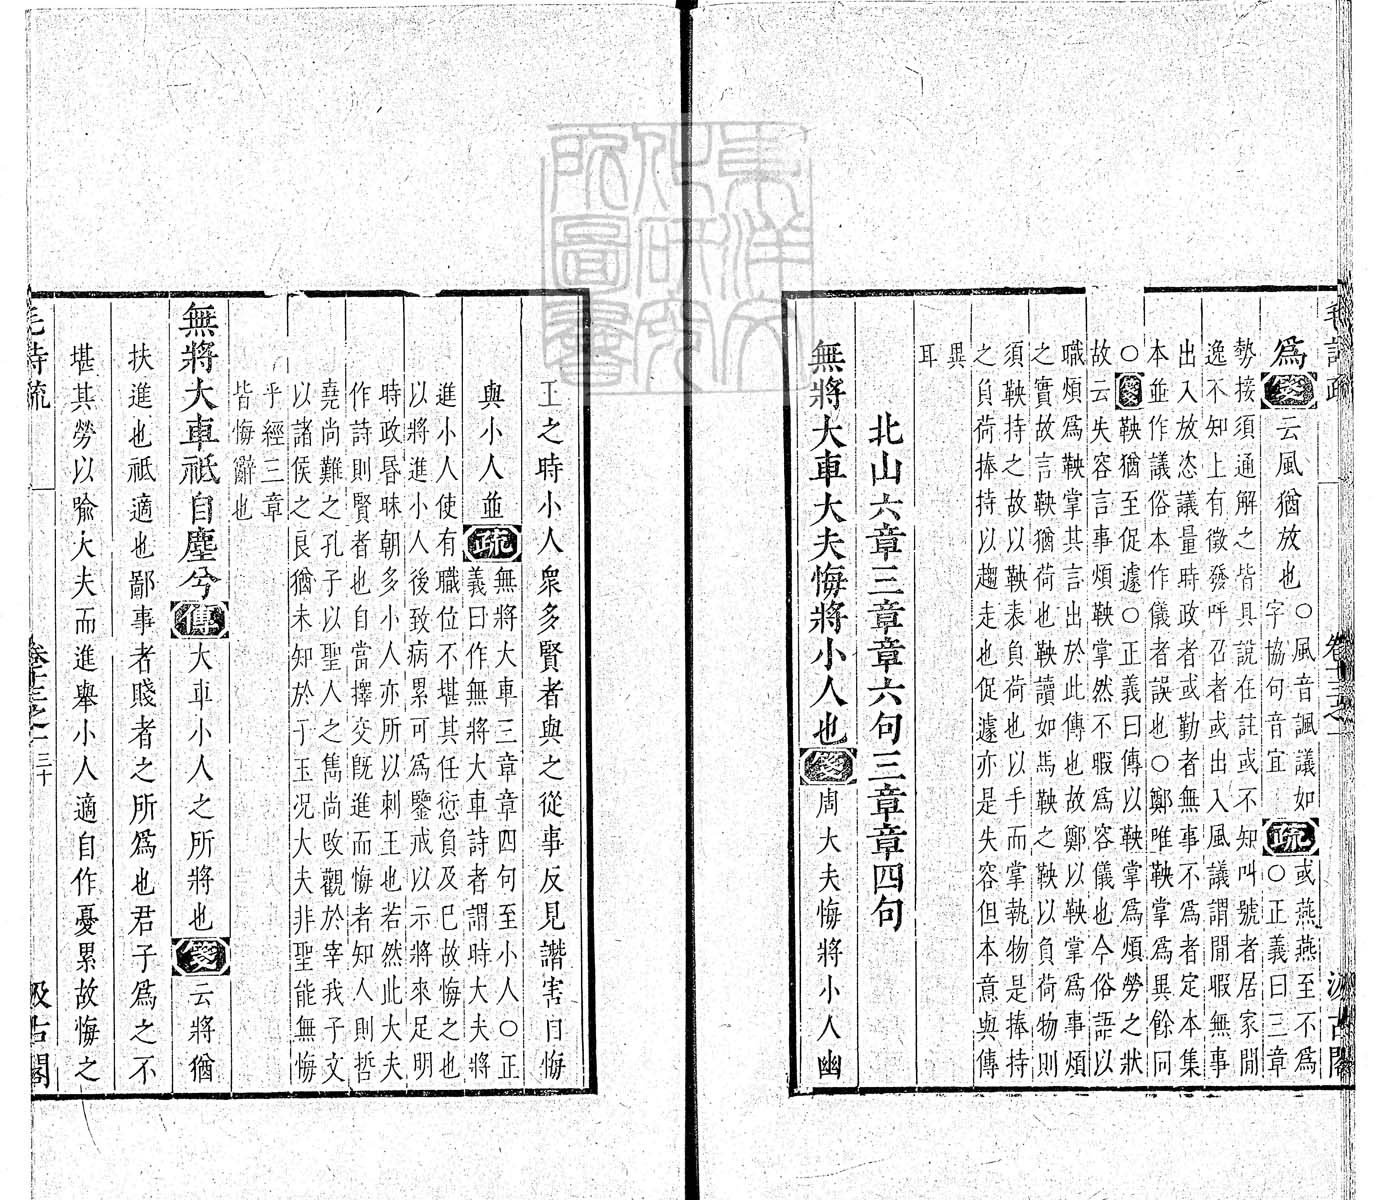 毛詩疏 卷十三之一 汲古閣
爲箋云風猶放也○風音諷議如
字協句音宜疏或燕燕至不爲
○正義曰三章
勢接須通解之皆具說在註或不知叫號者居家閒
逸不知上有徵發呼召者或出入風議謂閒暇無事
出入放恣議量時政者或勤者無事不爲者定本集
本並作議俗本作儀者誤也○鄭唯鞅掌爲異餘同
○箋鞅猶至促遽○正義曰傳以鞅掌爲煩勞之狀
故云失容言事煩鞅掌然不暇爲容儀也今俗語以
職煩爲鞅掌其言出於此傳也故鄭以鞅掌爲事煩
之實故言鞅猶荷也鞅讀如馬鞅之鞅以負荷物則
須鞅持之故以鞅表負荷也以手而掌執物是捧持
之負荷捧持以趨走也促遽亦是失容但本意與傳
異
耳
北山六章三章章六句三章章四句
無將大車大夫悔將小人也箋周大夫悔將小人幽
王之時小人衆多賢者與之從事反見譖害自悔
與小人並疏無將大車三章章四句至小人○正
義曰作無將大車詩者謂時大夫將
進小人使有職位不堪其任愆負及已故悔之也
以將進小人後致病累可爲鑒戒以示將來足明
時政昏昧朝多小人亦所以刺王也若然此大夫
作詩則賢者也自當擇交旣進而悔者知人則哲
堯尚難之孔子以聖人之雋尚改觀於宰我子文
以諸侯之良猶未知於于玉况大夫非聖能無悔
乎經三章
皆悔辭也
無將大車祇自塵兮傳大車小人之所將也箋云將猶
扶進也祇適也鄙事者賤者之所爲也君子爲之不
堪其勞以喻大夫而進舉小人適自作憂累故悔之
毛詩疏 卷十三之一 三十 汲古閣
東洋文
化研究
所圖書